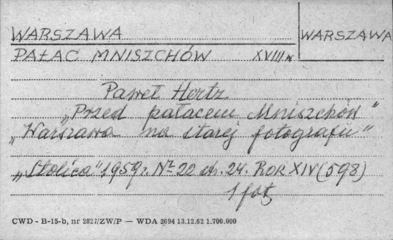 WARSZAWA WARSZAWA
PAŁAC MNISZCHÓW XVIII w
Paweł Hertz
„Przed pałacem Mniszchów"
„Warszawa na starej fotografii"
„Stolica" 1959 r. Nr 22 str. 24. ROK XIV (598)
1 fot
CWD - B-15-b, nr 2827/ZW/P — WDA 2694 13.12.62 1.700.000